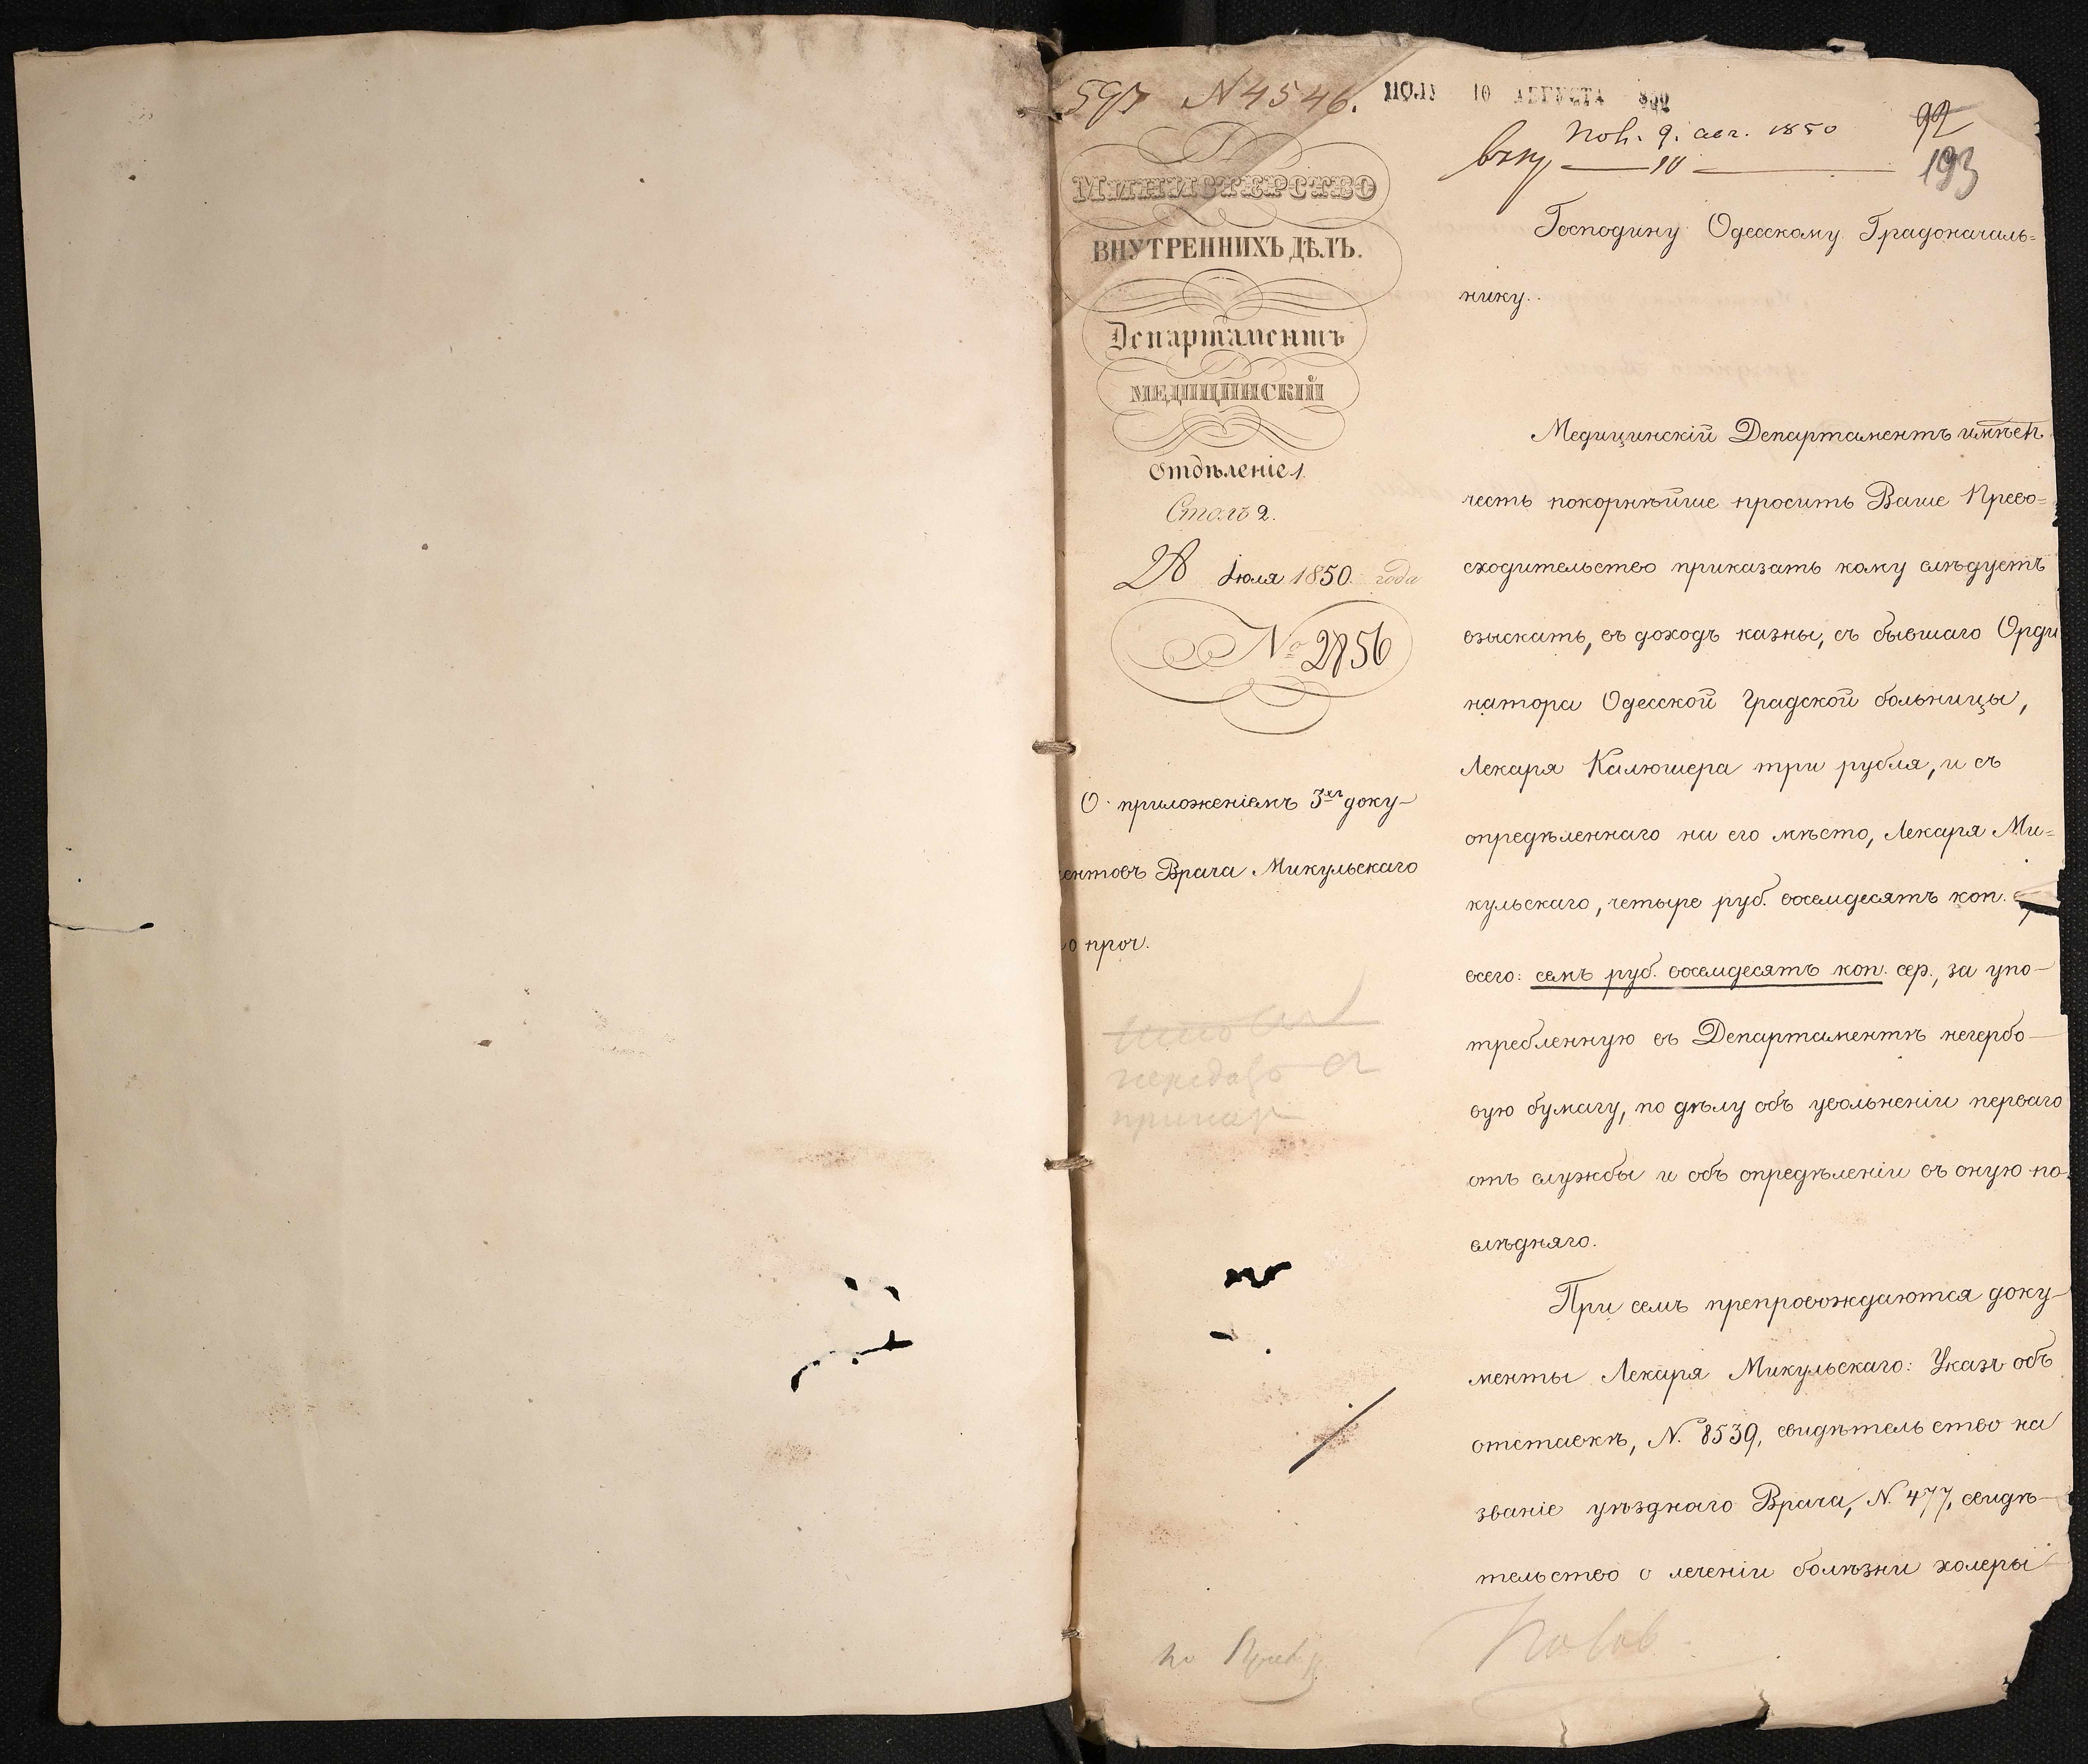 597 N 4546.
ПОЛУ 10 АВГУСТА 850
Пол. 9. авг. 1850
92
10
193
МИНИСТЕРСТВО
ВНУТРЕННИХЪ ДѢЛЪ.
Департаментъ
МЕДИЦИНСКІЙ
Отдѣленіе 1.
Столъ 2.
28 Іюля 1850. года
№ 2856
О приложеніемъ 3хъ доку-
ентовъ Врача Микульскаго
о проч.
Господину Одесскому Градоначаль=
нику.
Медицинскій Департаментъ имѣетъ
честь покорнѣйше просить Ваше Прево=
сходительство приказать кому слѣдуетъ
взыскать, въ доходъ казны, съ бывшаго Орди
натора Одесской Градской больницы,
Лекаря Калюшера три рубля, и съ
опредѣленнаго на его мѣсто, Лекаря Ми=
кульскаго, четыре руб. восемдесятъ коп.
всего: семь руб. восемдесятъ коп. сер., за упо-
требленную въ Департаментѣ негербо-
вую бумагу, по дѣлу объ увольненіи перваго
отъ службы и объ опредѣленіи въ оную по-
слѣдняго.
При семъ препровождаются доку-
менты Лекаря Микульскаго: Указъ объ
отставкѣ, N. 8539, свидѣтельство на
званіе уѣзднаго Врача, N. 477, свидѣ-
тельство о леченіи болѣзни холеры